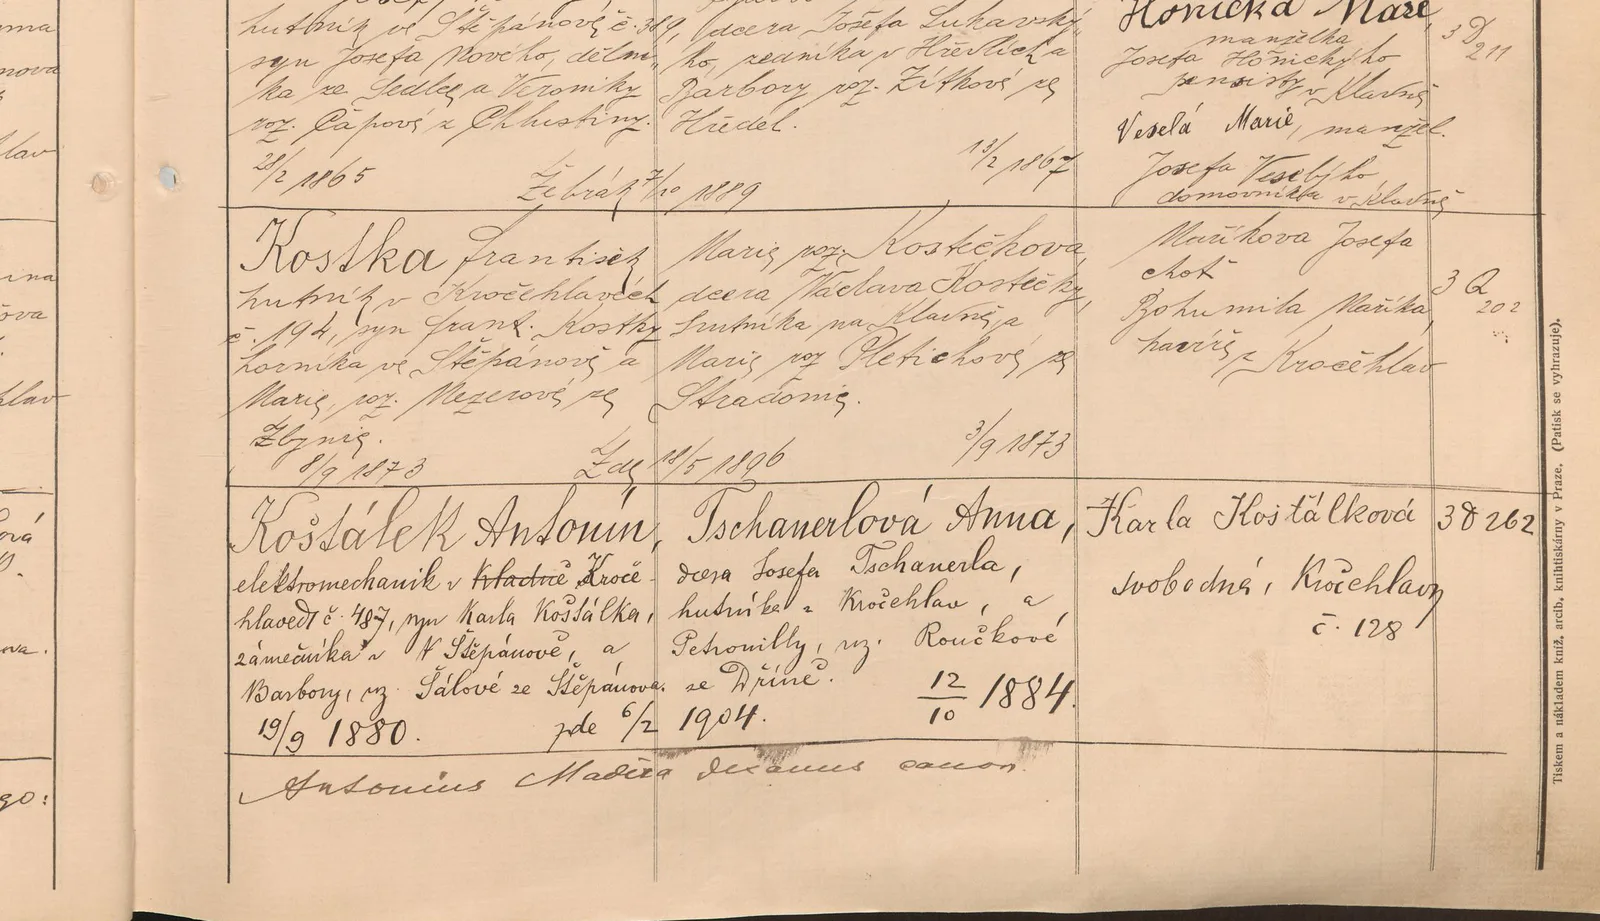 hutník ve Štěpánově č. 389,
syn Josefa Nového, dělní-
ka ze Sedlce a Veroniky
roz. Čápové z Chlustiny.
28/2 1865
Žebrák 7/10 1889
dcera Josefa Lukavský-
ho, zedníka v Hředlích a
Barbory roz. Zítkové ze
Hředel.
13/2 1867
Hönická Marie,
manželka
Josefa Hönického
pensisty v Kladně
Veselá Marie, manžel.
Josefa Veselýho
domovníka v Kladně
3 D
211
Kostka František
hutník v Kročehlavech
č. 194, syn Frant. Kostky
horníka ve Štěpánově a
Marie, roz. Mezerové ze
Zbynie.
8/9 1873
Zde 18/5 1896
Marie roz. Kostečkova
dcera Václava Kostečky,
hutníka na Kladně a
Marie roz Pletichové ze
Stradonic.
3/9 1873
Maříkova Josefa
choť
Bohumila Maříka,
havíře z Kročehlav
3 Q
202
Košťálek Antonín,
elektromechanik v Kladně Kroče-
hlavech č. 487, syn Karla Košťálka,
zámečníka v N Štěpánově, a
Barbory, roz. Šálové ze Štěpánova.
19/9 1880.
zde 6/2 1904.
Tschanerlová Anna,
dcera Josefa Tschanerla,
hutníka z Kročehlav, a
Petronilly, roz. Roučkové
ze Dříně.
12/10 1884.
Karla Košťálková
svobodná, Kročehlavy
č. 128
3 D 262
Antonius Maděra decanus canon.
Tiskem a nákladem kníž. arcib. knihtiskárny v Praze. (Patisk se vyhrazuje).